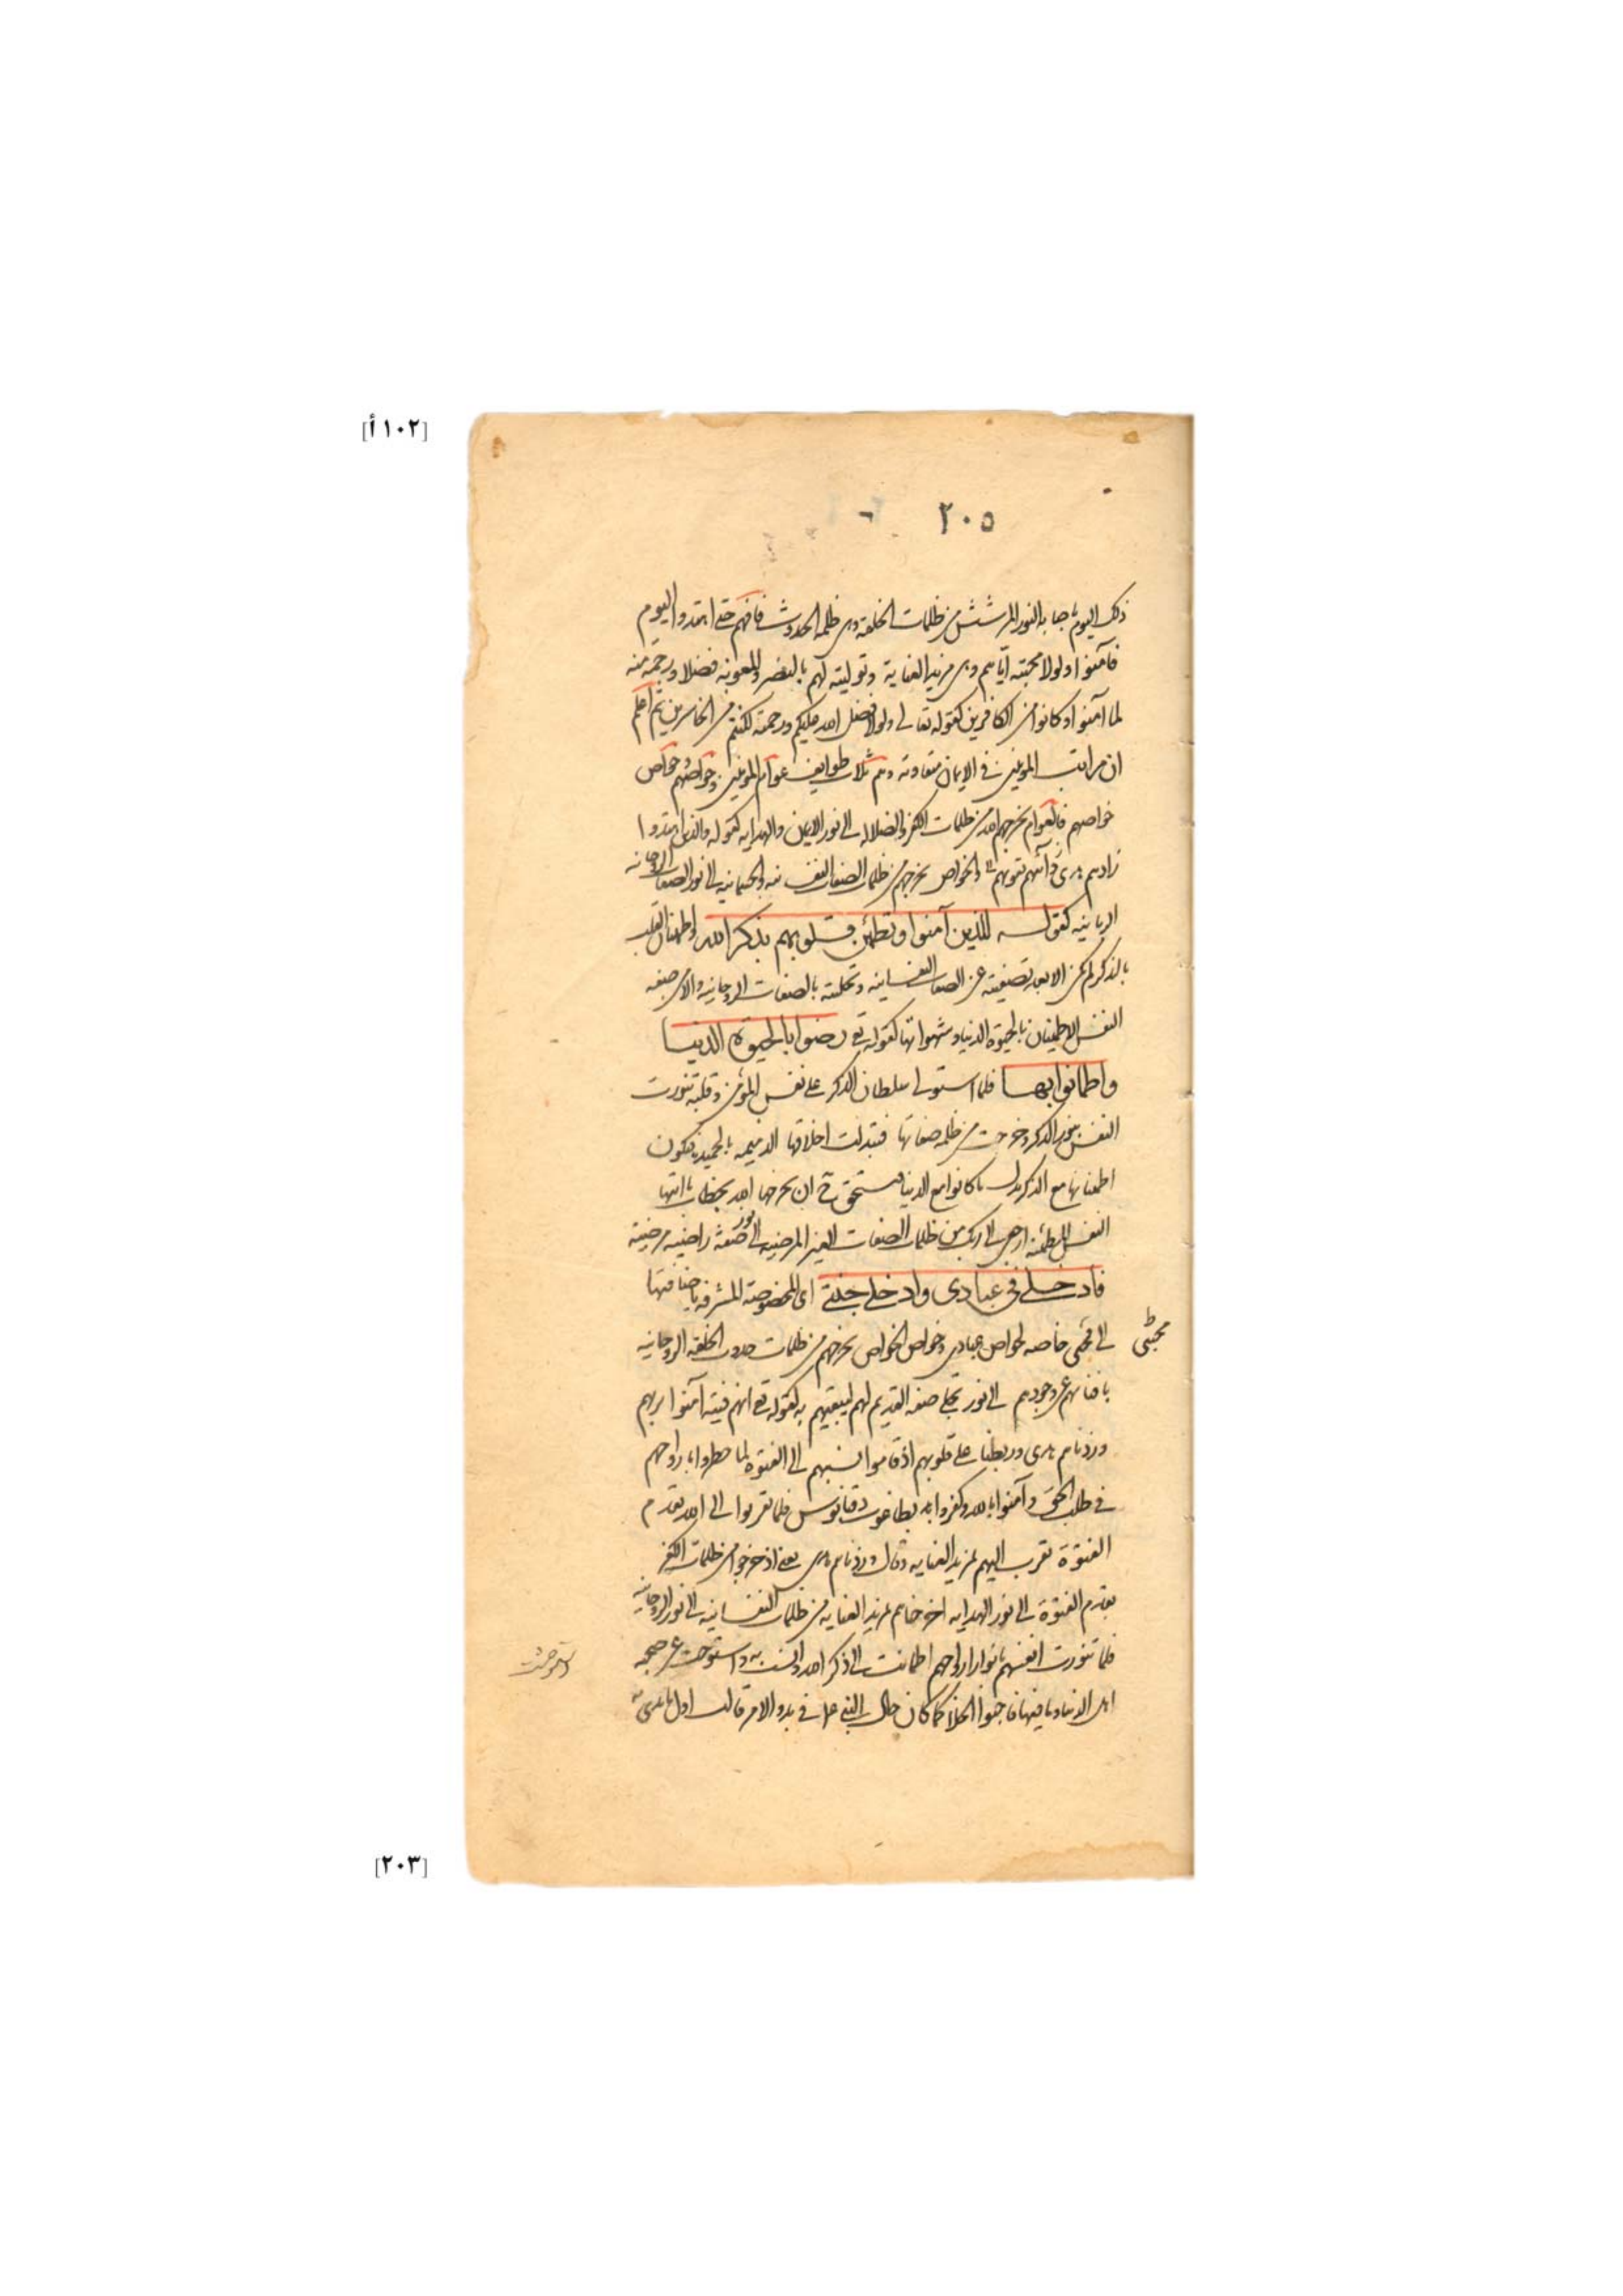 [١٠٢ أ]
٢٠٥
ذلك اليوم باصابه النور المرشش من ظلمات الخلقة وهى ظلمة الحدوث فافهم حتى اهتدوا اليوم
فآمنوا ولولا محبته اياهم وهى مزيد العناية وتوليته لهم بالنصر والمعونة فضلا ورحمة منه
لما آمنوا وكانوا من الكافرين كقوله تعالى ولولا فضل الله عليكم ورحمته لكنتم من الخاسرين ثم اعلم
ان مراتب المؤمنين فى الايمان متفاوته وهم ثلاث طوايف عوام المؤمنين وخواصهم وخواص
خواصهم فالعوام يخرجهم الله من ظلمات الكفر والضلالة الى نور الايمان والهداية كقوله والذين اهتدوا
زادهم هدى وآتيهم تقويهم والخواص يخرجهم من ظلمات الصفات النفسانيه والجسمانيه الى نور الصفات الروحانيه
الربانيه كقوله الذين آمنوا وتطمئن قلوبهم بذكر الله واطمينان القلب
بالذكر لم يكن الا بعد تصفيته عن الصفات النفسانيه وتحليته بالصفات الروحانيه والا من صفه
النفس الاطمينان بالحيوة الدنيا وشهواتها كقوله تع رضوا بالحيوة الدنيا
واطمانوا بها فلما استولى سلطان الذكر على نفس المؤمن وقلبه تنورت
النفس بنور الذكر وخرجت من ظلمة صفاتها فتبدلت اخلاقها الذميمه بالحميدة فيكون
اطمئنانها مع الذكر بدل ما كانوا مع الدنيا فتستحق ح ان يخرجها الله بخطاب يا ايتها
النفس المطمئنة ارجعى الى ربك من ظلمات الصفات الغير المرضيه الى نور صفة راضيه مرضيه
فادخلى فى عبادى وادخلى جنتى اى المخصوصة المشرفه باضافتها
مجتبى
الى فهى خاصه لخواص عبادى وخواص الخواص يخرجهم من ظلمات حدوث الخلقه الروحانيه
بافنائهم عن وجودهم الى نور تجلى صفه القديم لهم ليبقيهم به كقوله تع انهم فتيه آمنوا بربهم
وزدناهم هدى وربطنا على قلوبهم اذ قاموا نسبهم الى الفتوة لما خطروا بارواحهم
فى طلب الحق وآمنوا بالله وكفروا بطاغوت دقيانوس فلما تقربوا الى الله بقدم
الفتوة تقرب اليهم بمزيد العنايه وقال وزدناهم هدى يعنى اذ خرجوا من ظلمات الكفر
بقدم الفتوة الى نور الهدايه اخرجناهم بمزيد العنايه من ظلمات النفسانيه الى نور الروحانيه
فلما تنورت انفسهم بانوار ارواحهم اطمانت الى ذكر الله وانست به واستوحشت عن صحبه
واستوحشت
اهل الدنيا وما فيها فاحبوا الخلا كما كان حال النبى عم فى بدو الامر قالت اول ما بدى
[٢٠٣]